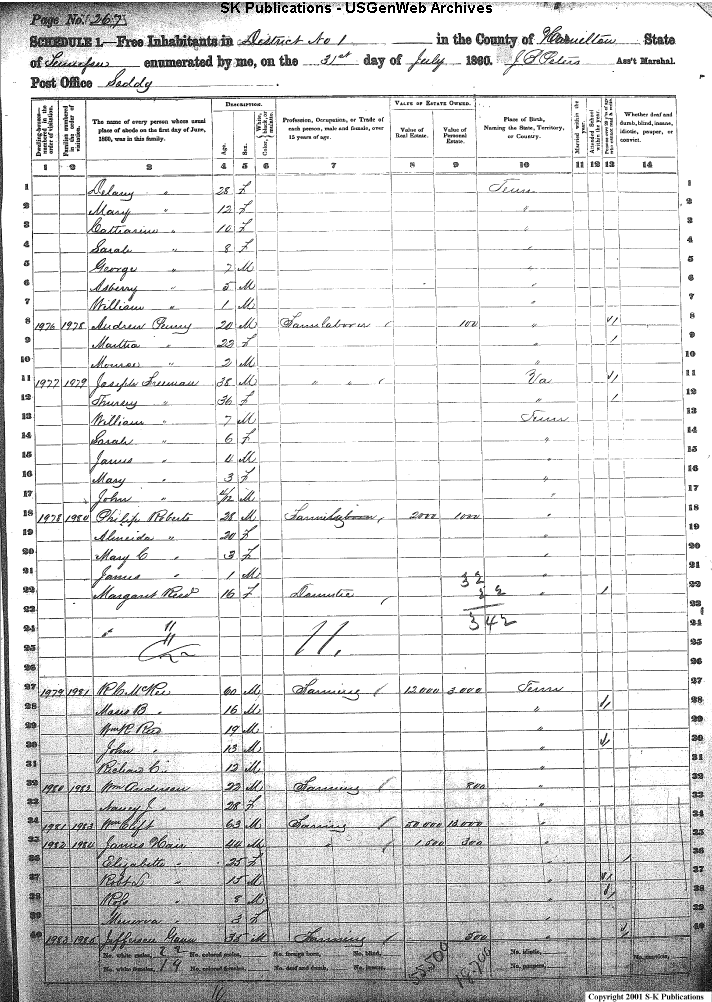 SK Publications - USGenWeb Archives
Page No. 267
SCHEDULE 1.—Free Inhabitants in District No 1 in the County of Hamelton State
of enumerated by me, on the 31st day of July 1860. Ass't Marshal.
Post Office Soddy
Dwelling-houses—numbered in the order of visitation.
Families numbered in the order of visitation.
The name of every person whose usual place of abode on the first day of June, 1860, was in this family.
DESCRIPTION.
Age.
Sex.
Color, White, black, or mulatto.
Profession, Occupation, or Trade of each person, male and female, over 15 years of age.
VALUE OF ESTATE OWNED.
Value of Real Estate.
Value of Personal Estate.
Place of Birth, Naming the State, Territory, or Country.
Married within the year.
Attended School within the year.
Whether deaf and dumb, blind, insane, idiotic, pauper, or convict.
1 2 3 4 5 6 7 8 9 10 11 12 13 14
1 Delany " 28 F Tenn 1
2 Mary " 12 F " 2
3 Catharine " 10 F " 3
4 Sarah " 8 F " 4
5 George " 7 M " 5
6 Asberry " 5 M " 6
7 William " 1 M " 7
8 1976 1978 Andrew 20 M Farmlaborer 100 " 1 8
9 Martha " 22 F " 1 9
10 Monroe " 2 M " 10
11 1977 1979 Joseph Freeman 38 M " " Va 1 11
12 Thursey " 36 F " 1 12
13 William " 7 M Tenn 13
14 Sarah " 6 F " 14
15 James " 4 M 15
16 Mary " 3 F " 16
17 John " M " 17
18 1978 1980 Philip Roberts 28 M Farmlaborer 2000 1000 " 18
19 Almeida " 20 F " 19
20 Mary C " 3 F " 20
21 James " 1 M " 21
22 Margaret Reed 16 F Domestic " 1 22
32
22
342
11
11,
27 1979 1981 R C McRee 60 M Farming 12,000 3,000 Tenn 27
28 B " 16 M " 28
29 Wm R Reo 19 M " 29
30 John " 13 M " 30
31 Richard C " 12 M
32 1980 1982 Wm Anderson 22 M Farming 800 "
33 Nancy J " 28 F "
34 1981 1983 Wm Clift 63 M Farming 50,000 "
35 1982 1984 James Hair 44 M " 1,500 300 "
36 Elizabeth " 25 F "
37 Robt " 15 M "
38 " 8 M "
39 Minerva " 3 F "
40 1983 1985 Jefferson 35 M Farming 500 "
No. white males, 22 No. colored males, No. foreign born, No. blind, No. idiotic,
No. white females, 14 No. colored females, No. deaf and dumb, No. insane, No. paupers, No. convicts,
Copyright 2001 S-K Publications